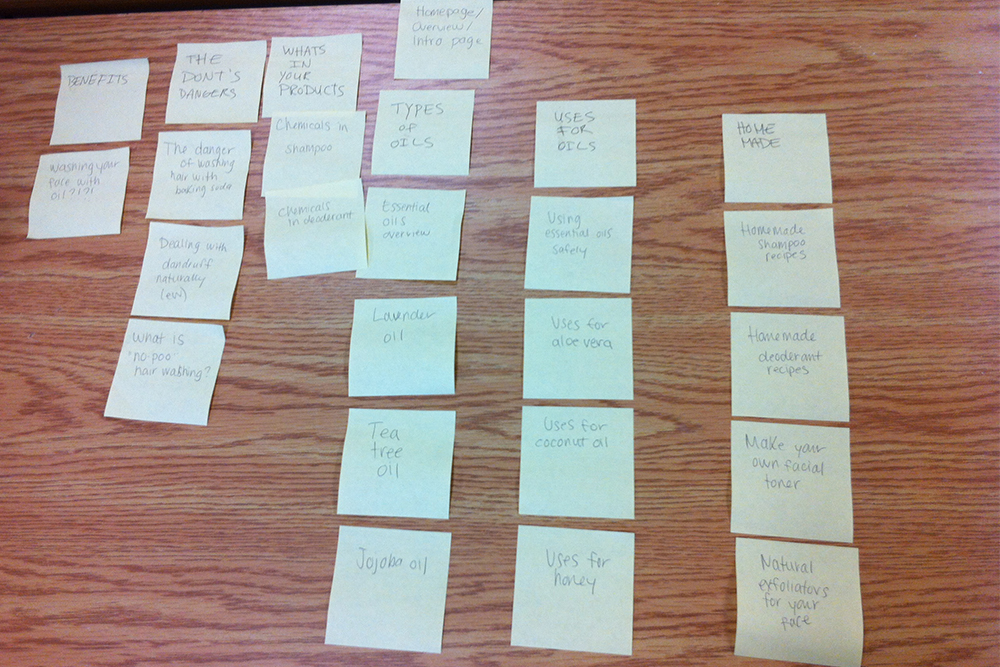 Homepage/
Overview/
Intro page
BENEFITS
Washing your
face with
oil?!?!
THE
DONT'S
DANGERS
The danger
of washing
hair with
baking soda
Dealing with
dandruff
naturally
(ew)
What is
"no-poo
hair washing?
WHATS
IN
YOUR
PRODUCTS
Chemicals in
shampoo
Chemicals
in deodorant
TYPES
OF
OILS
Essential
oils
overview
Lavender
oil
Tea
tree
oil
Jojoba oil
USES
FOR
OILS
Using
essential oils
safely
Uses for
aloe vera
Uses for
coconut oil
Uses for
honey
HOME
MADE
Homemade
shampoo
recipes
Homemade
deoderant
recipes
Make your
own facial
toner
Natural
exfoliators
for your
face